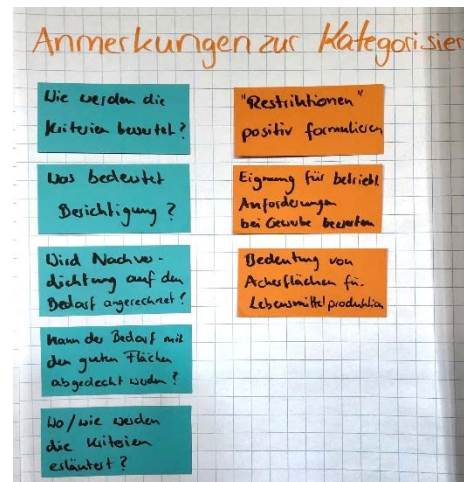 Anmerkungen zur Kategorisier
Wie werden die
Kriterien bewertet?
Was bedeutet
Berichtigung?
Wird Nachver-
dichtung auf den
Bedarf angerechnet?
Kann der Bedarf mit
den guten Flächen
abgedeckt werden?
Wo/wie werden
die Kriterien
erläutert?
"Restriktionen"
positiv formulieren
Eignung für betriebl.
Anforderungen
bei Gewerbe bewerten
Bedeutung von
Ackerflächen für
Lebensmittelproduktion